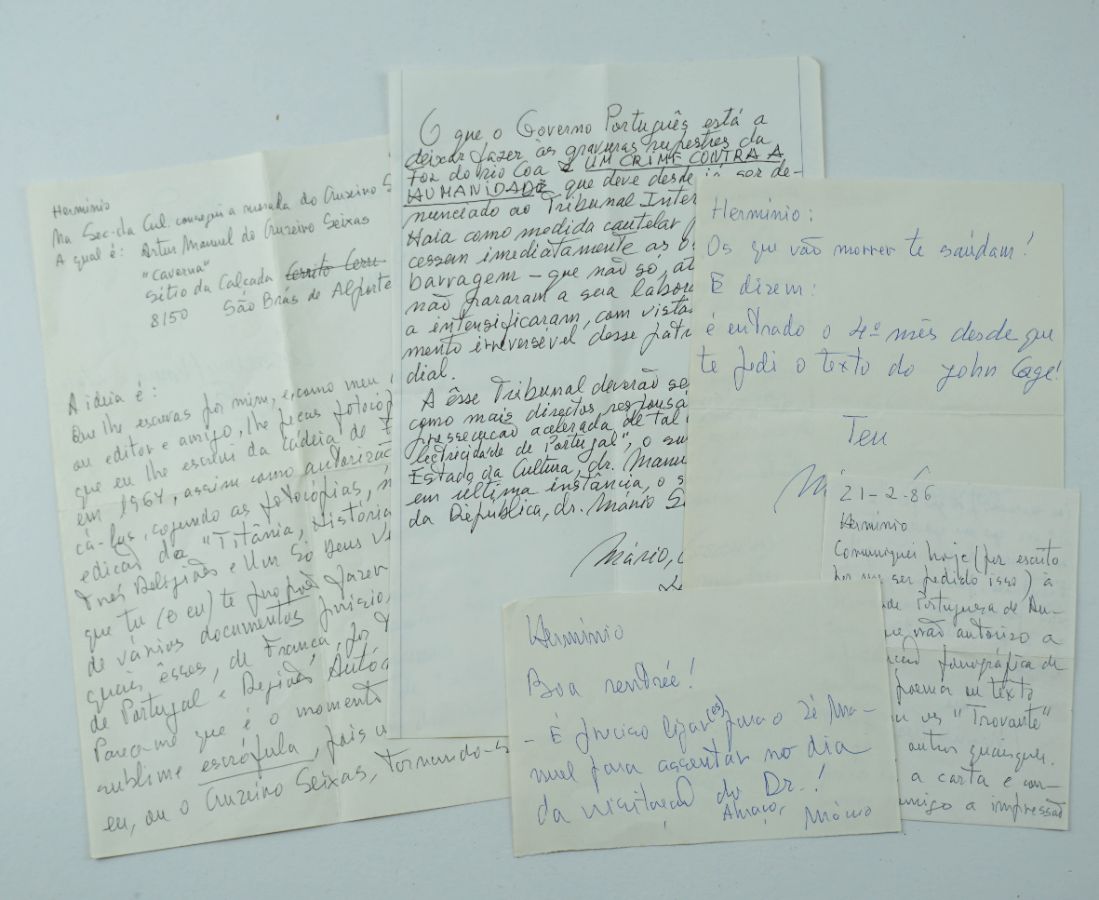 Hermínio
Na Sec. da Cul. consegui a morada do Cruzeiro S
A qual é: Artur Manuel do Cruzeiro Seixas
"Caverna"
Sítio da Calçada
8150 São Brás de Alporte
A ideia é:
Que lhe escrevas por mim, e, como meu
ou editor e amigo, lhe peças fotocóp
que eu lhe escrevi da cadeia de F
em 1964, assim como autorizaç
cá-las, segundo as fotocópias, n
edição da "Titânia, História
três Religiões e Um Só Deus V
que tu (e eu) te fazer
de vários documentos
quais êsses, de França, por
de Portugal e Regiões Autó
Parece-me que é o momento
sublime escrófula, pois
eu, ou o Cruzeiro Seixas, tornando-s
O que o Governo Português está a
deixar fazer às gravuras rupestres da
Foz do rio Coa é UM CRIME CONTRA A
HUMANIDADE que deve desde já ser de-
nunciado ao Tribunal Inter
Haia como medida cautelar
cessem imediatamente as o
barragem – que não só, at
não pararam a sua labor
a intensificaram, com vista
mento irreversível desse patri
dial.
A êsse Tribunal deverão se
como mais directos responsá
prossecução acelerada de tal
lectricidade de Portugal", o su
Estado da Cultura, dr. Manu
em última instância, o s
da República, dr. Mário So
Mário, C
Hermínio:
Os que vão morrer te saúdam!
E dizem:
é entrado o 4º mês desde que
te pedi o texto do John Cage!
Teu
M
21-2-86
Hermínio
Comuniquei hoje (por escrito
por me ser pedido isso) à
de Portuguesa de Au-
ue não autorizo a
fonográfica de
poema ou texto
os "Trovante"
outros quaisquer.
a carta e con-
migo a impressão
Hermínio
Boa rentrée!
- É preciso ligar(es) para o Zé Ma-
nuel para assentar no dia
da visitação do Dr.!
Abraço, Mário